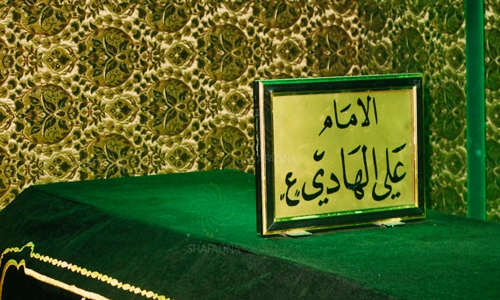 الامَام
عَلي الهَاديّ ع
SHAFAQNA